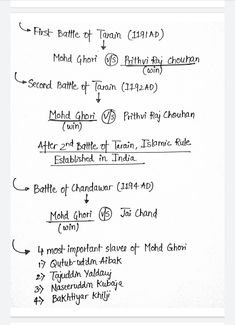 First Battle of Tarain (1191AD)
Mohd Ghori V/S Prithvi Raj Chouhan
(win)
Second Battle of Tarain (1192AD)
Mohd Ghori V/S Prithvi Raj Chouhan
(win)
After 2nd Battle of Tarain, Islamic Rule
Established in India
Battle of Chandawar (1194AD)
Mohd Ghori V/S Jai Chand
(win)
4 most important slaves of Mohd Ghori
1) Qutub-uddin Aibak
2) Tajuddin Yalduj
3) Naseruddin Kubaja
4) Bakhtiyar Khilji